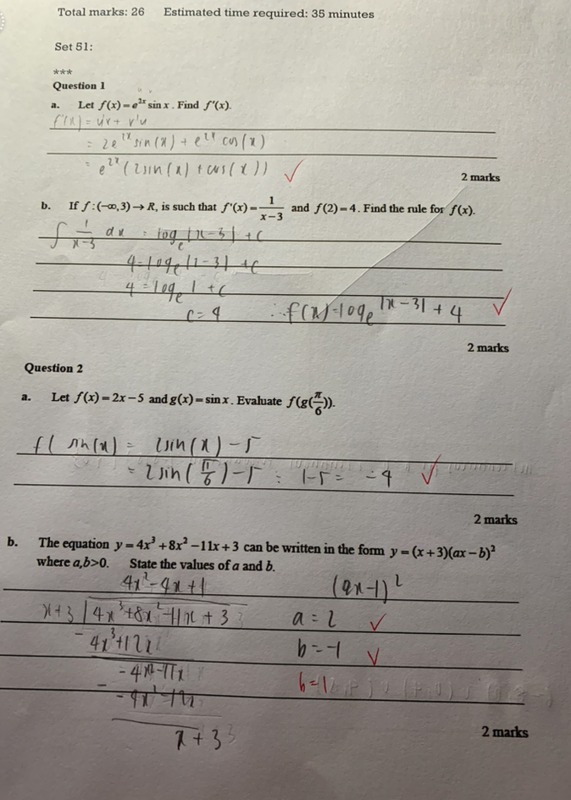 Total marks: 26 Estimated time required: 35 minutes
Set 51:
***
Question 1
a. Let f(x) = e^{2x} sin x. Find f'(x).
f'(x) = u'v + v'u
= 2e^{2x} sin(x) + e^{2x} cos(x)
= e^{2x} (2sin(x) + cos(x)) ✓
2 marks
b. If f : (-∞, 3) → R, is such that f'(x) = 1/(x-3) and f(2) = 4. Find the rule for f(x).
∫ 1/(x-3) dx = log_e |x-3| + c
4 = log_e |2-3| + c
4 = log_e 1 + c
c = 4 ∴ f(x) = log_e |x-3| + 4 ✓
2 marks
Question 2
a. Let f(x) = 2x - 5 and g(x) = sin x. Evaluate f(g(π/6)).
f( sin(x) = 2sin(x) - 5
= 2sin(π/6) - 5 = 1-5 = -4 ✓
2 marks
b. The equation y = 4x³ + 8x² - 11x + 3 can be written in the form y = (x+3)(ax-b)²
where a,b>0. State the values of a and b.
4x² - 4x + 1 (2x-1)²
x+3 4x³+8x²-11x + 3 a = 2 ✓
- 4x³+12x² b = -1 ✓
-4x²-11x b=1
- -4x²-12x
x + 3
2 marks